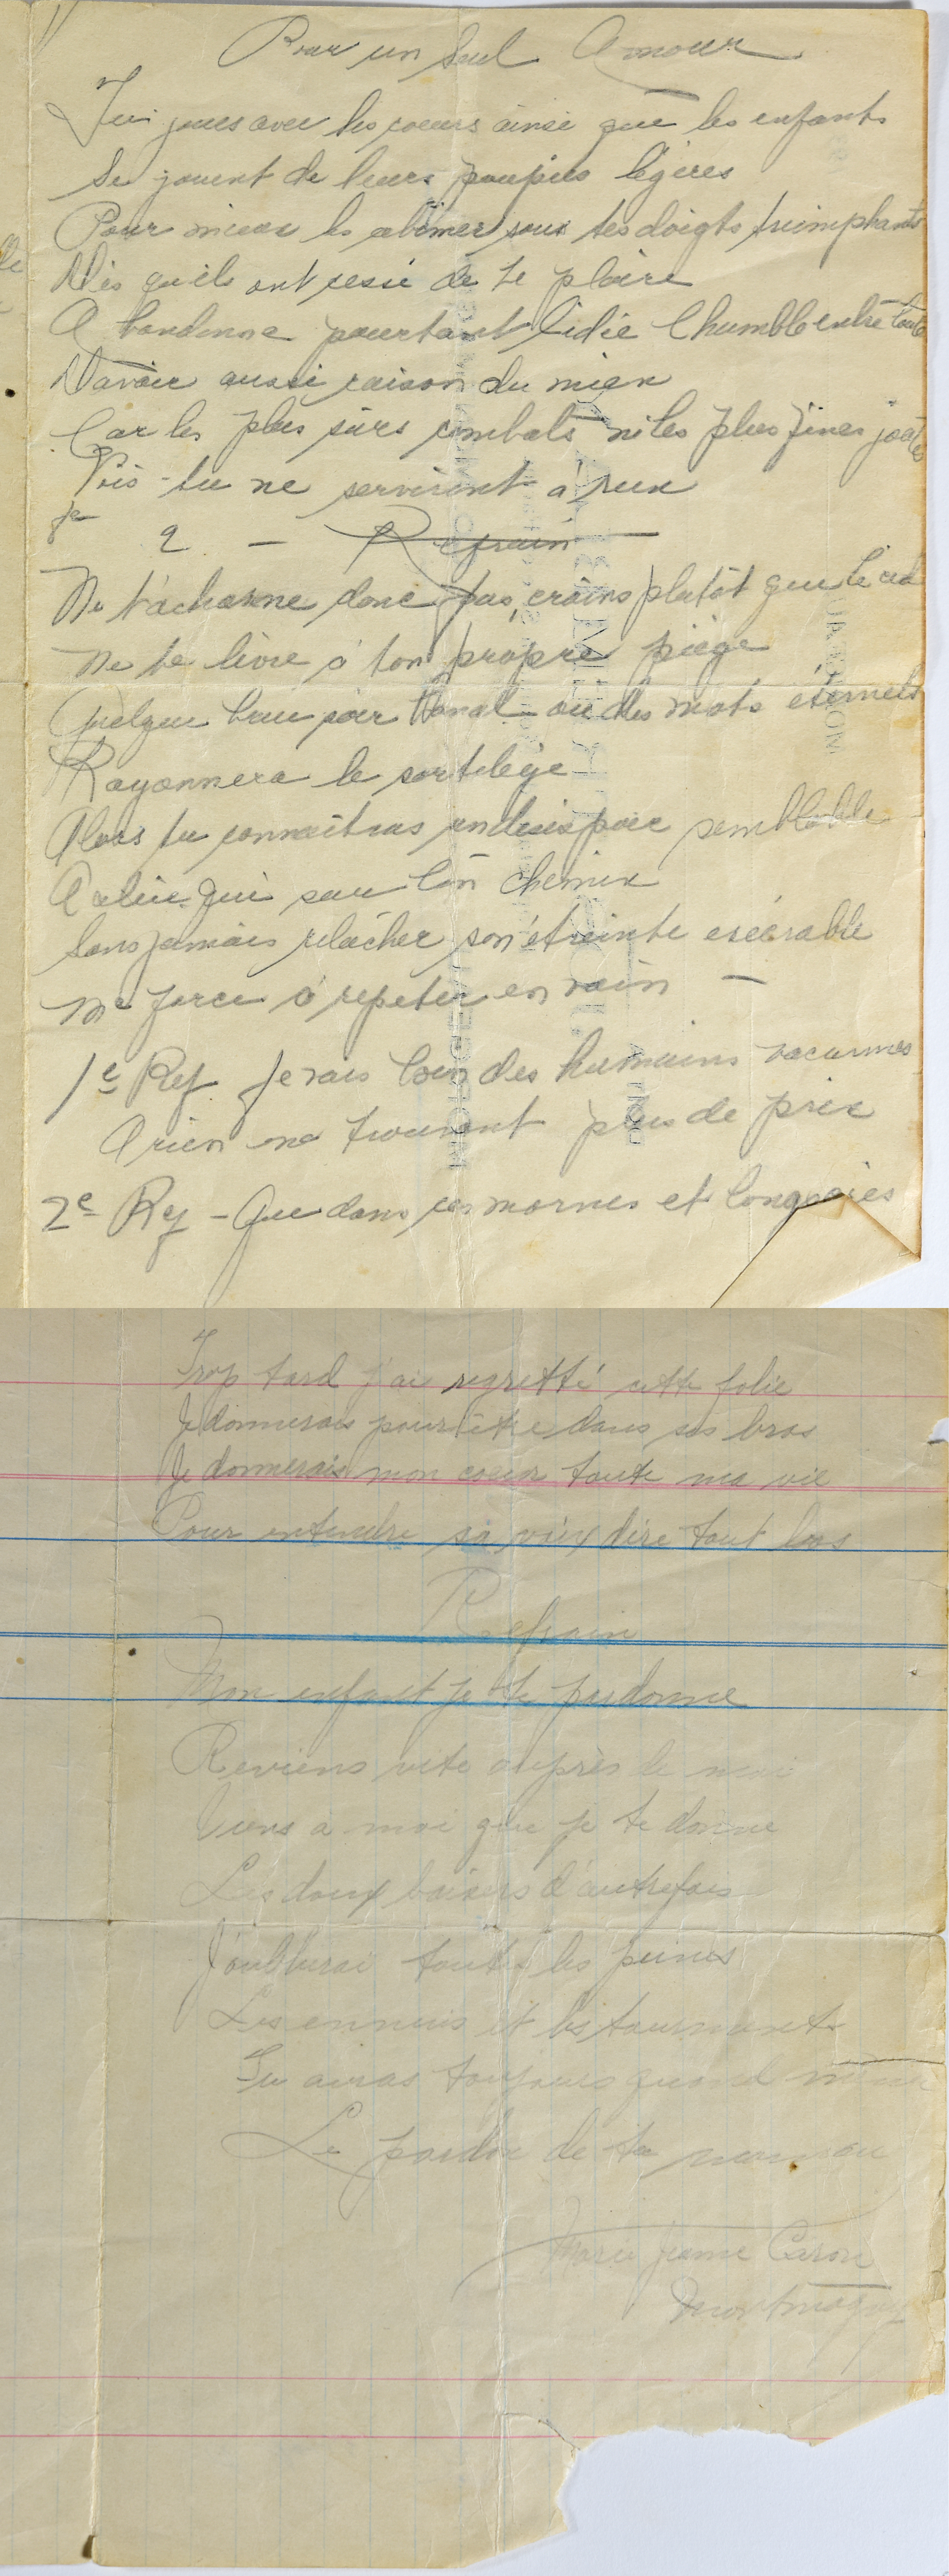 Pour un seul Amour
Tu joues avec les coeurs ainsi que les enfants
Se jouent de leurs poupées légères
Pour mieux les abîmer sous tes doigts triomphants
Dès qu'ils ont cessé de te plaire
Abandonne pourtant l'idée l'humble entre toute
D'avoir aussi raison du mien
Car les plus sûrs combats ni les plus fines joutes
Vois-tu ne serviront à rien
2 - Refrain
Ne t'acharne donc pas, crains plutôt que le ciel
Ne te livre à ton propre piège
Quelque beau soir banal où des mots éternels
Rayonnera le sortilège
Alors tu connaîtras un désespoir semblable
A celui qui sur ton chemin
Sans jamais relâcher son étreinte exécrable
Me force à répéter en vain -
1e Ref. Je vais loin des humains vacarmes
A rien ne trouvant plus de prix
2e Ref - Que dans ces mornes et longues
Trop tard j'ai regretté cette folie
Je donnerais pour être dans ses bras
Je donnerais mon coeur toute ma vie
Pour entendre sa voix dire tout bas
Refrain
Mon enfant je te pardonne
Reviens vite auprès de moi
Viens a moi que je te donne
Les doux baisers d'autrefois
J'oublierai toutes les peines
Les ennuis et les tourments
Tu auras toujours quand même
Le pardon de ta maman
Marie Jeanne Caron
Montmagny